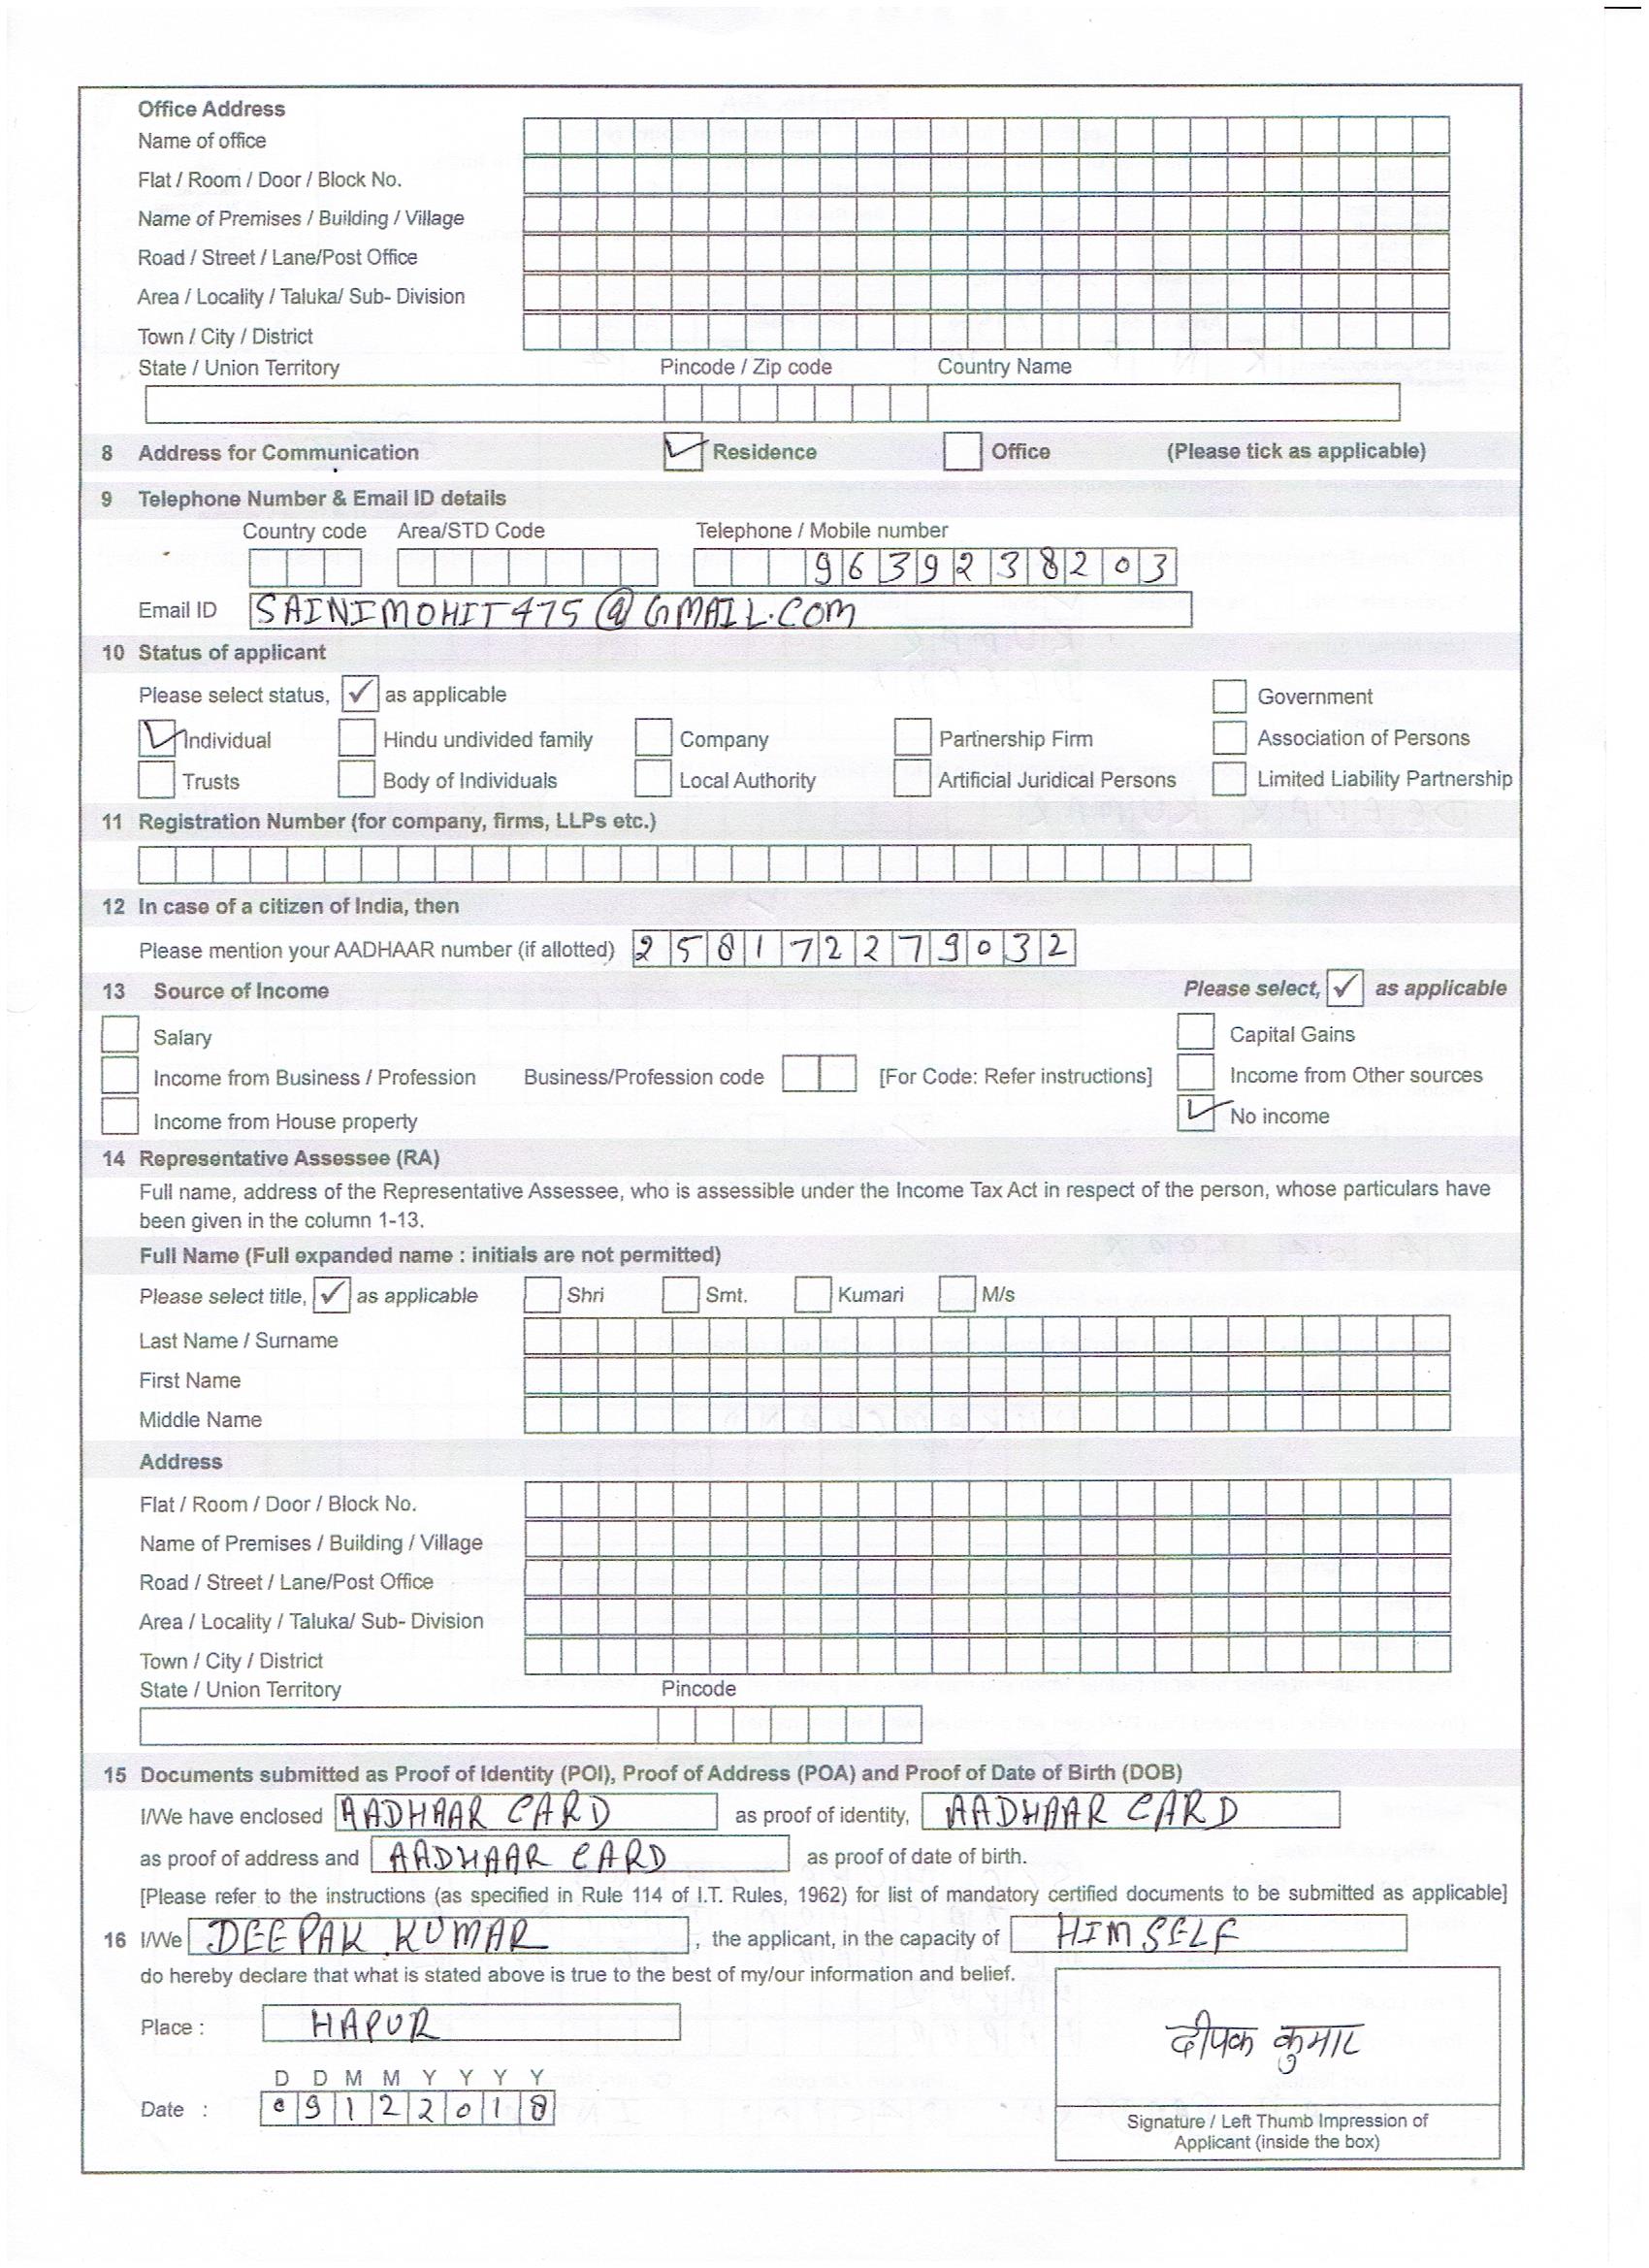 Office Address
Name of office
Flat / Room / Door / Block No.
Name of Premises / Building / Village
Road / Street / Lane/Post Office
Area / Locality / Taluka/ Sub- Division
Town / City / District
State / Union Territory Pincode / Zip code Country Name
8 Address for Communication Residence Office (Please tick as applicable)
9 Telephone Number & Email ID details
Country code Area/STD Code Telephone / Mobile number
9639238203
Email ID SAINIMOHIT475@GMAIL.COM
10 Status of applicant
Please select status, ✓ as applicable Government
Individual Hindu undivided family Company Partnership Firm Association of Persons
Trusts Body of Individuals Local Authority Artificial Juridical Persons Limited Liability Partnership
11 Registration Number (for company, firms, LLPs etc.)
12 In case of a citizen of India, then
Please mention your AADHAAR number (if allotted) 258172279032
13 Source of Income Please select, ✓ as applicable
Salary Capital Gains
Income from Business / Profession Business/Profession code [For Code: Refer instructions] Income from Other sources
Income from House property No income
14 Representative Assessee (RA)
Full name, address of the Representative Assessee, who is assessible under the Income Tax Act in respect of the person, whose particulars have
been given in the column 1-13.
Full Name (Full expanded name : initials are not permitted)
Please select title, ✓ as applicable Shri Smt. Kumari M/s
Last Name / Surname
First Name
Middle Name
Address
Flat / Room / Door / Block No.
Name of Premises / Building / Village
Road / Street / Lane/Post Office
Area / Locality / Taluka/ Sub- Division
Town / City / District
State / Union Territory Pincode
15 Documents submitted as Proof of Identity (POI), Proof of Address (POA) and Proof of Date of Birth (DOB)
I/We have enclosed AADHAAR CARD as proof of identity, AADHAAR CARD
as proof of address and AADHAAR CARD as proof of date of birth.
[Please refer to the instructions (as specified in Rule 114 of I.T. Rules, 1962) for list of mandatory certified documents to be submitted as applicable]
16 I/We DEEPAK KUMAR , the applicant, in the capacity of HIMSELF
do hereby declare that what is stated above is true to the best of my/our information and belief.
Place : HAPUR
दीपक कुमार
D D M M Y Y Y Y
Date : 09122018
Signature / Left Thumb Impression of
Applicant (inside the box)